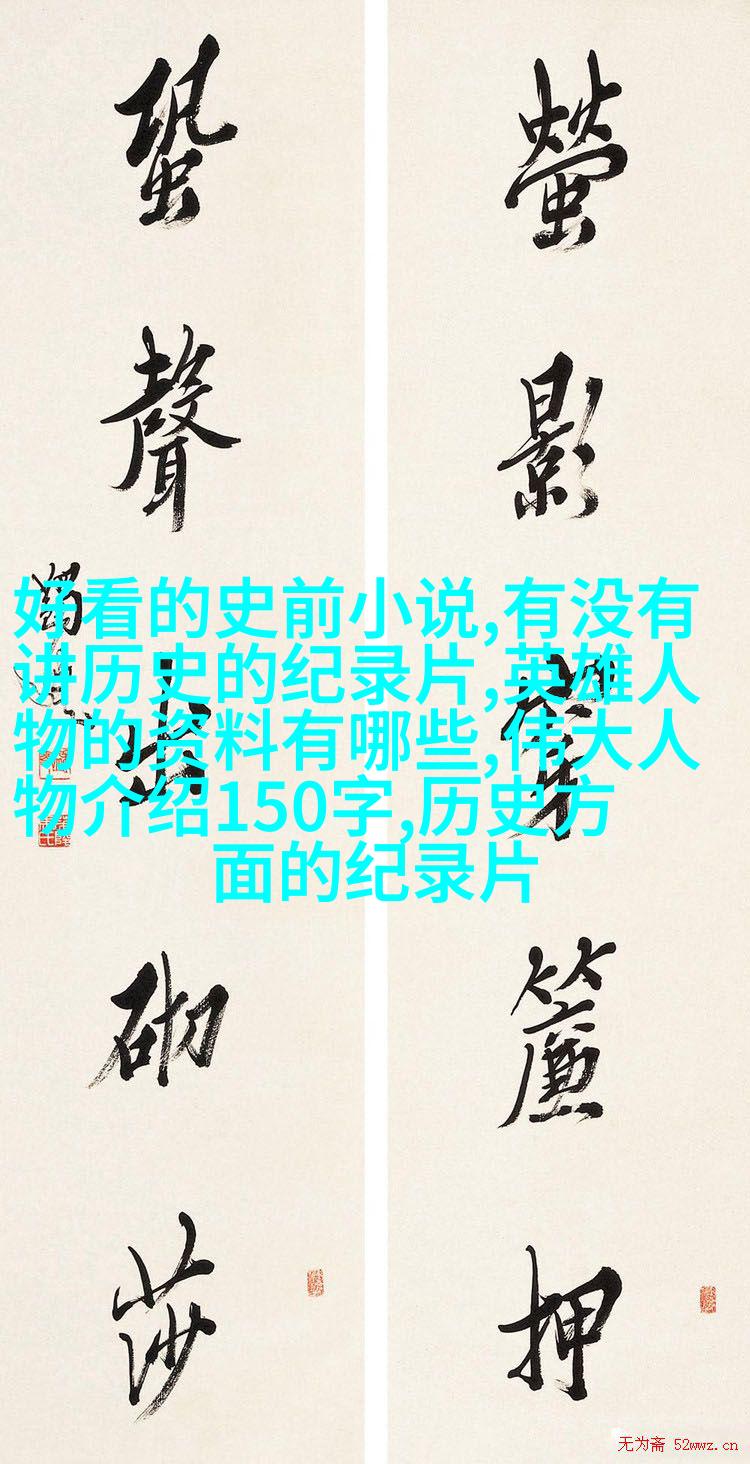 螢影窺簾押
蛩聲出砌莎
好看的史前小说,有没有
讲历史的纪录片,英雄人
物的资料有哪些,伟大人
物介绍150字,历史方
面的纪录片
无为斋 52wwz.cn